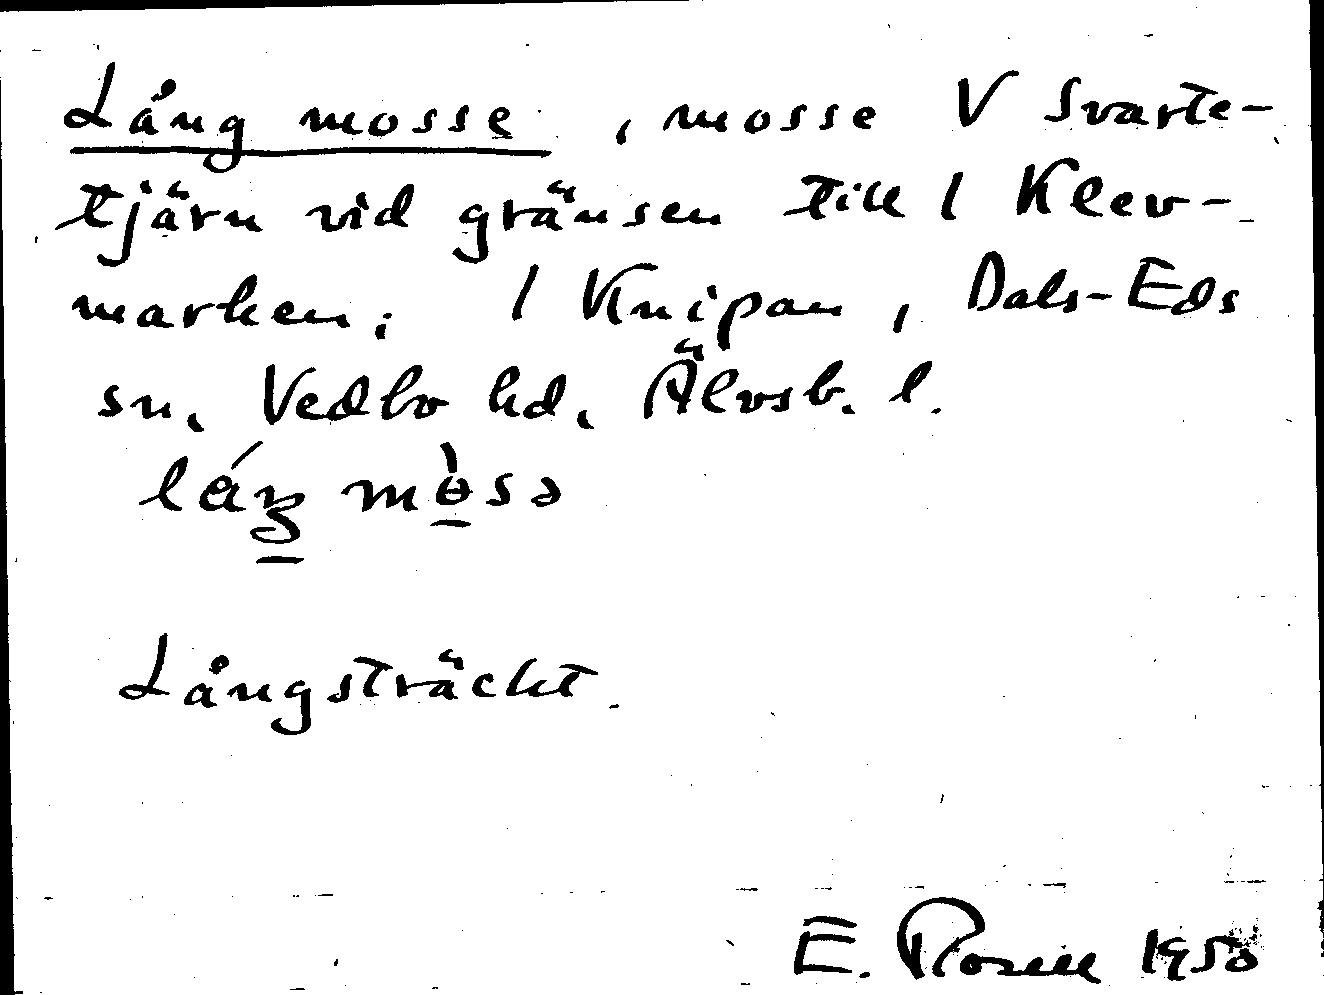 Lång mosse, mosse V Svarte-
tjärn vid gränsen till 1 Klev-
marken; 1 Knipan, Dals-Eds
sn, Vedbo hd, Älvsb. l.
Långsträckt.
E. Rosell 1950